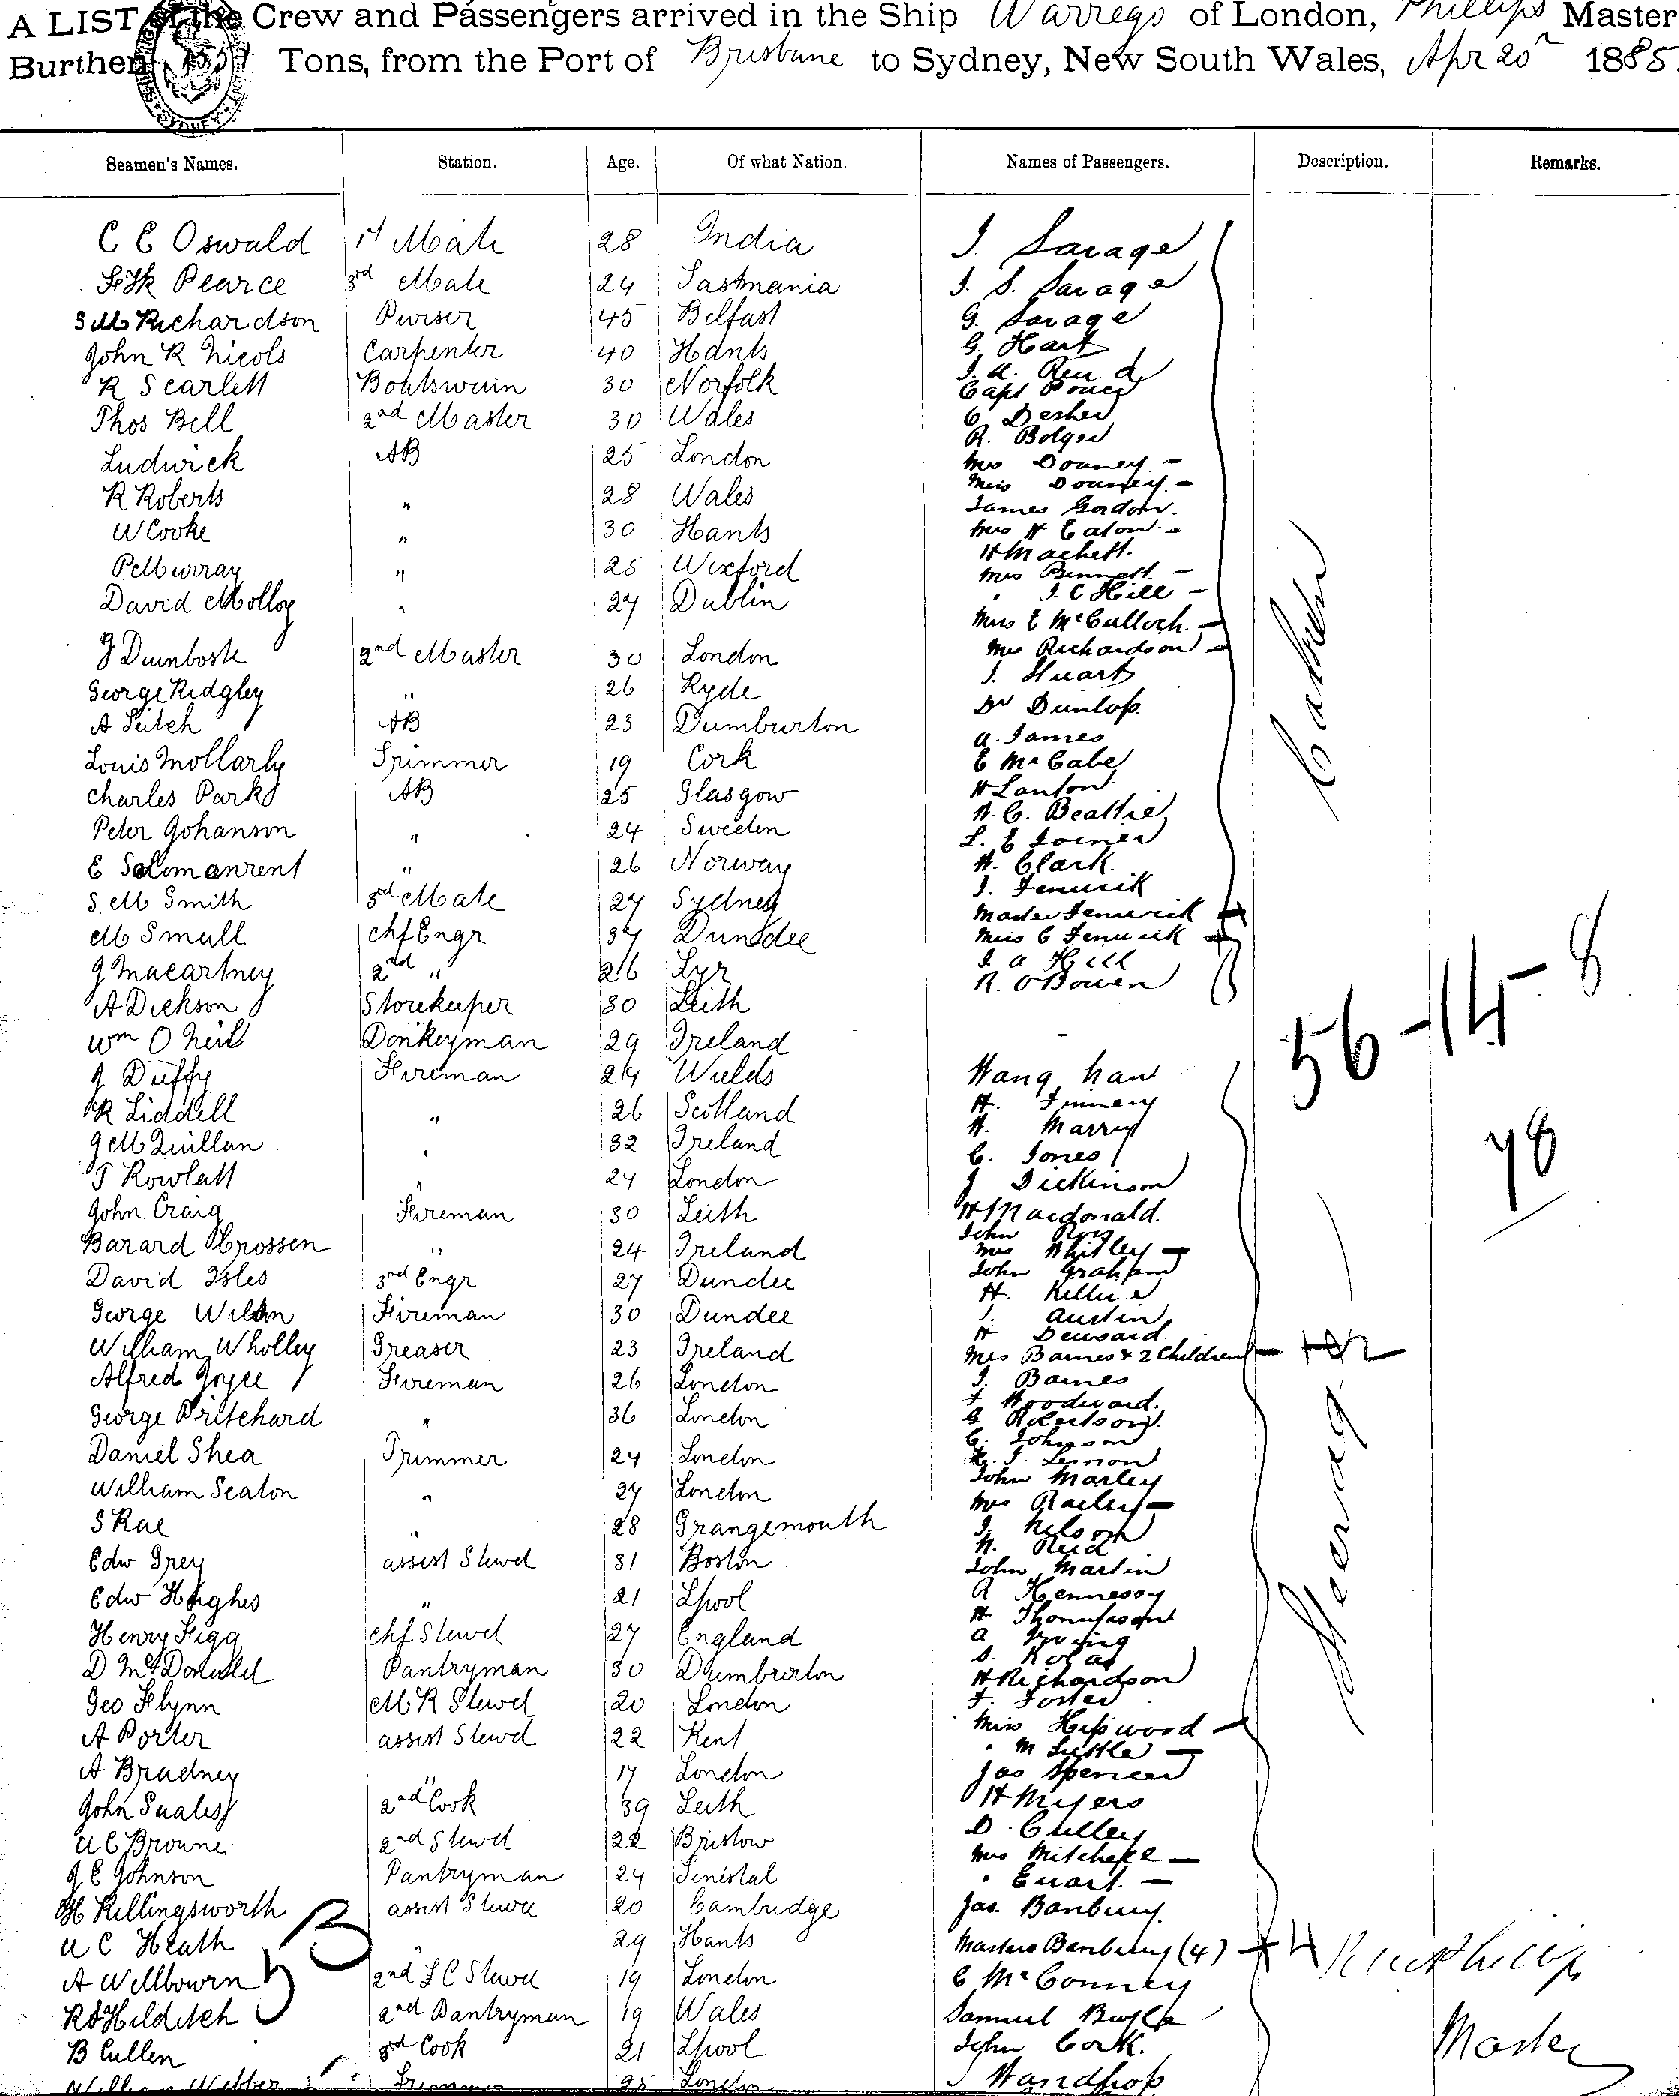 A LIST of the Crew and Passengers arrived in the Ship Warrego of London, Phillips Master
Burthen Tons, from the Port of Brisbane to Sydney, New South Wales, Apr 20 1885
Seamen's Names. Station. Age. Of what Nation. Names of Passengers. Description. Remarks.
C E Oswald 1st Mate 28 India J. Savage
Pearce 3rd Mate 24 Tasmania J. S. Savage
Richardson Purser 45 Belfast G. Savage
John R Nicols Carpenter 40 Hants G. Hart
R Scarlett Boatswain 30 Norfolk
Capt
Thos Bell 2nd Master 30 Wales
R. Bolger
Ludwick AB 25 London Mrs Downey -
Miss Downey -
R Roberts " 28 Wales James Gordon.
W Cooke " 30 Hants Mrs H Eaton -
H Machett.
P Murray " 25 Wexford Mrs Bennett -
David Molloy " 27 Dublin " J. C Hill -
Mrs E McCulloch -
2nd Master 30 London Mrs Richardson -
George Ridgley " 26 Ryde J. Stuart
A Leitch AB 23 Dumbarton Dr Dunlop.
A. James
Louis Mollarly Trimmer 19 Cork E McCabe
Charles Park AB 25 Glasgow H Lanton
Peter Johanson " 24 Sweden A. C. Beattie
L. E Joiner
E Solomanrent " 26 Norway H. Clark
S. M Smith 3rd Mate 27 Sydney J. Fenwick
Master Fenwick
M Small chf Engr 37 Dundee Miss C Fenwick
J Macartney 2nd " 26 J A Hill
A Dickson Storekeeper 30 Leith R. O Bowen
Cabin
56-14-8
Wm O Neil Donkeyman 29 Ireland
J Duffy Fireman 24
R Liddell " 26 Scotland
J McQuillan " 32 Ireland
C. Jones
T Rowlatt " 24 London J Dickinson
John Craig Fireman 30 Leith H Macdonald.
78
Barard Crossen " 24 Ireland John Ross
Mrs Whitley -
David Isles 3rd Engr 27 Dundee John Graham
George Wilson Fireman 30 Dundee
Austin
William Wholley Greaser 23 Ireland Mrs Barnes & 2 Children - +2
Alfred Joyce Fireman 26 London J. Barnes
George Pritchard " 36 London F Woodward.
G Robertson.
C. Johnson
Daniel Shea Trimmer 24 London Lennon
John Marley
William Seaton " 27 London Mrs -
S Rae " 28 Grangemouth J. Nelson
Reid
Edw Grey assist Stewd 31 Boston John Martin
Edw Hughes " 21 Lpool A Hennessy
H Thompson
Henry Figg chf Stewd 27 England A Young
D McDonald Pantryman 30 Dumbarton
H Richardson
Geo Flynn M R Stewd 20 London F. Foster
A Porter assist Stewd 22 Kent Miss Hipwood -
" M Little -
A Bradney " 17 London Jas Spencer
John Suales 2nd Cook 39 Leith H Myers
W C Browne 2nd Stewd 22 Bristow D. Culley
J E Johnson Pantryman 24 Mrs Mitchell -
" Ewart. -
H Killingsworth assist Stewd 20 Cambridge Jas. Banbury.
W C Heath " 29 Hants Masters Banbury (4) +4
A Wellbourn 2nd S C Stewd 19 London C McConney
R S Hilditch 2nd Pantryman 19 Wales Samuel
B Cullen 3rd Cook 21 Lpool John Cork.
William Webber Trimmer 25 London
Steerage
Phillips
Master